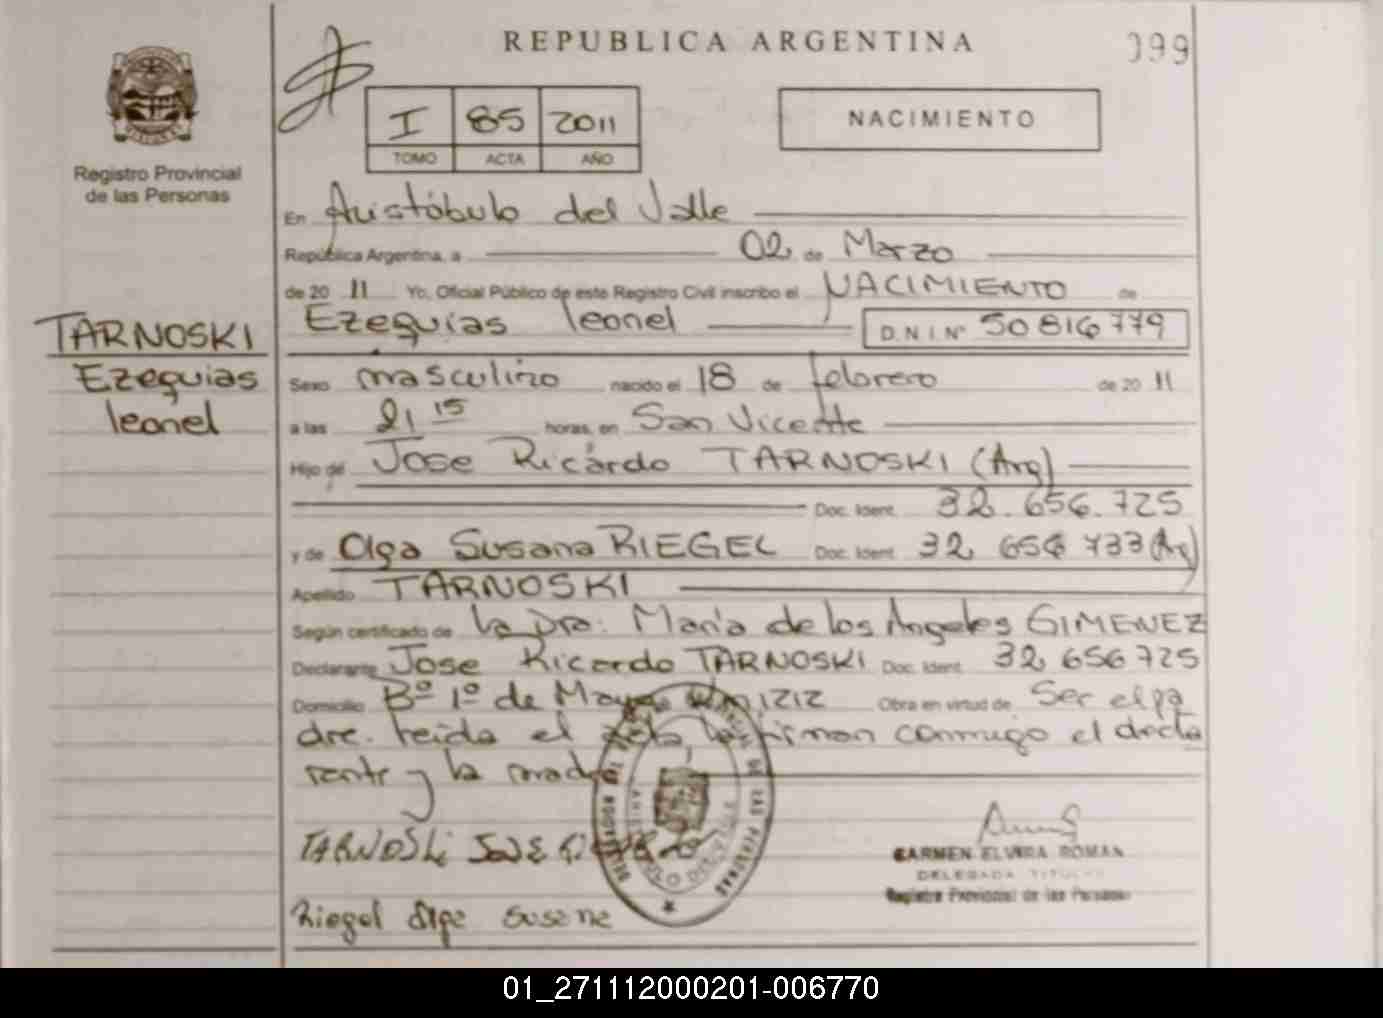 REPUBLICA ARGENTINA
099
Registro Provincial
de las Personas
I 85 2011
TOMO ACTA AÑO
NACIMIENTO
En Aristóbulo del Valle
República Argentina, a 02 de Marzo
de 20 11 Yo, Oficial Público de este Registro Civil inscribo el NACIMIENTO de
Ezequias leonel D.N.I. Nº 50 816 779
TARNOSKI
Ezequias
leonel
Sexo masculino nacido el 18 de febrero de 20 11
a las 21 15 horas, en San Vicente
Hijo de Jose Ricardo TARNOSKI (Arg)
Doc. Ident. 32.656.725
y de Olga Susana RIEGEL Doc. Ident. 32 656 733 (Arg)
Apellido TARNOSKI
Según certificado de la Dra. Maria de los Angeles GIMENEZ
Declarante Jose Ricardo TARNOSKI Doc. Ident. 32 656 725
Domicilio Bº 1º de Mayo Obra en virtud de Ser el pa
dre. leida el acta la firman conmigo el decla
rante y la madre
TARNOSKi JOSE
Riegel Olga Susana
CARMEN ELVIRA ROMAN
DELEGADA TITULAR
Registro Provincial de las Personas
01_271112000201-006770